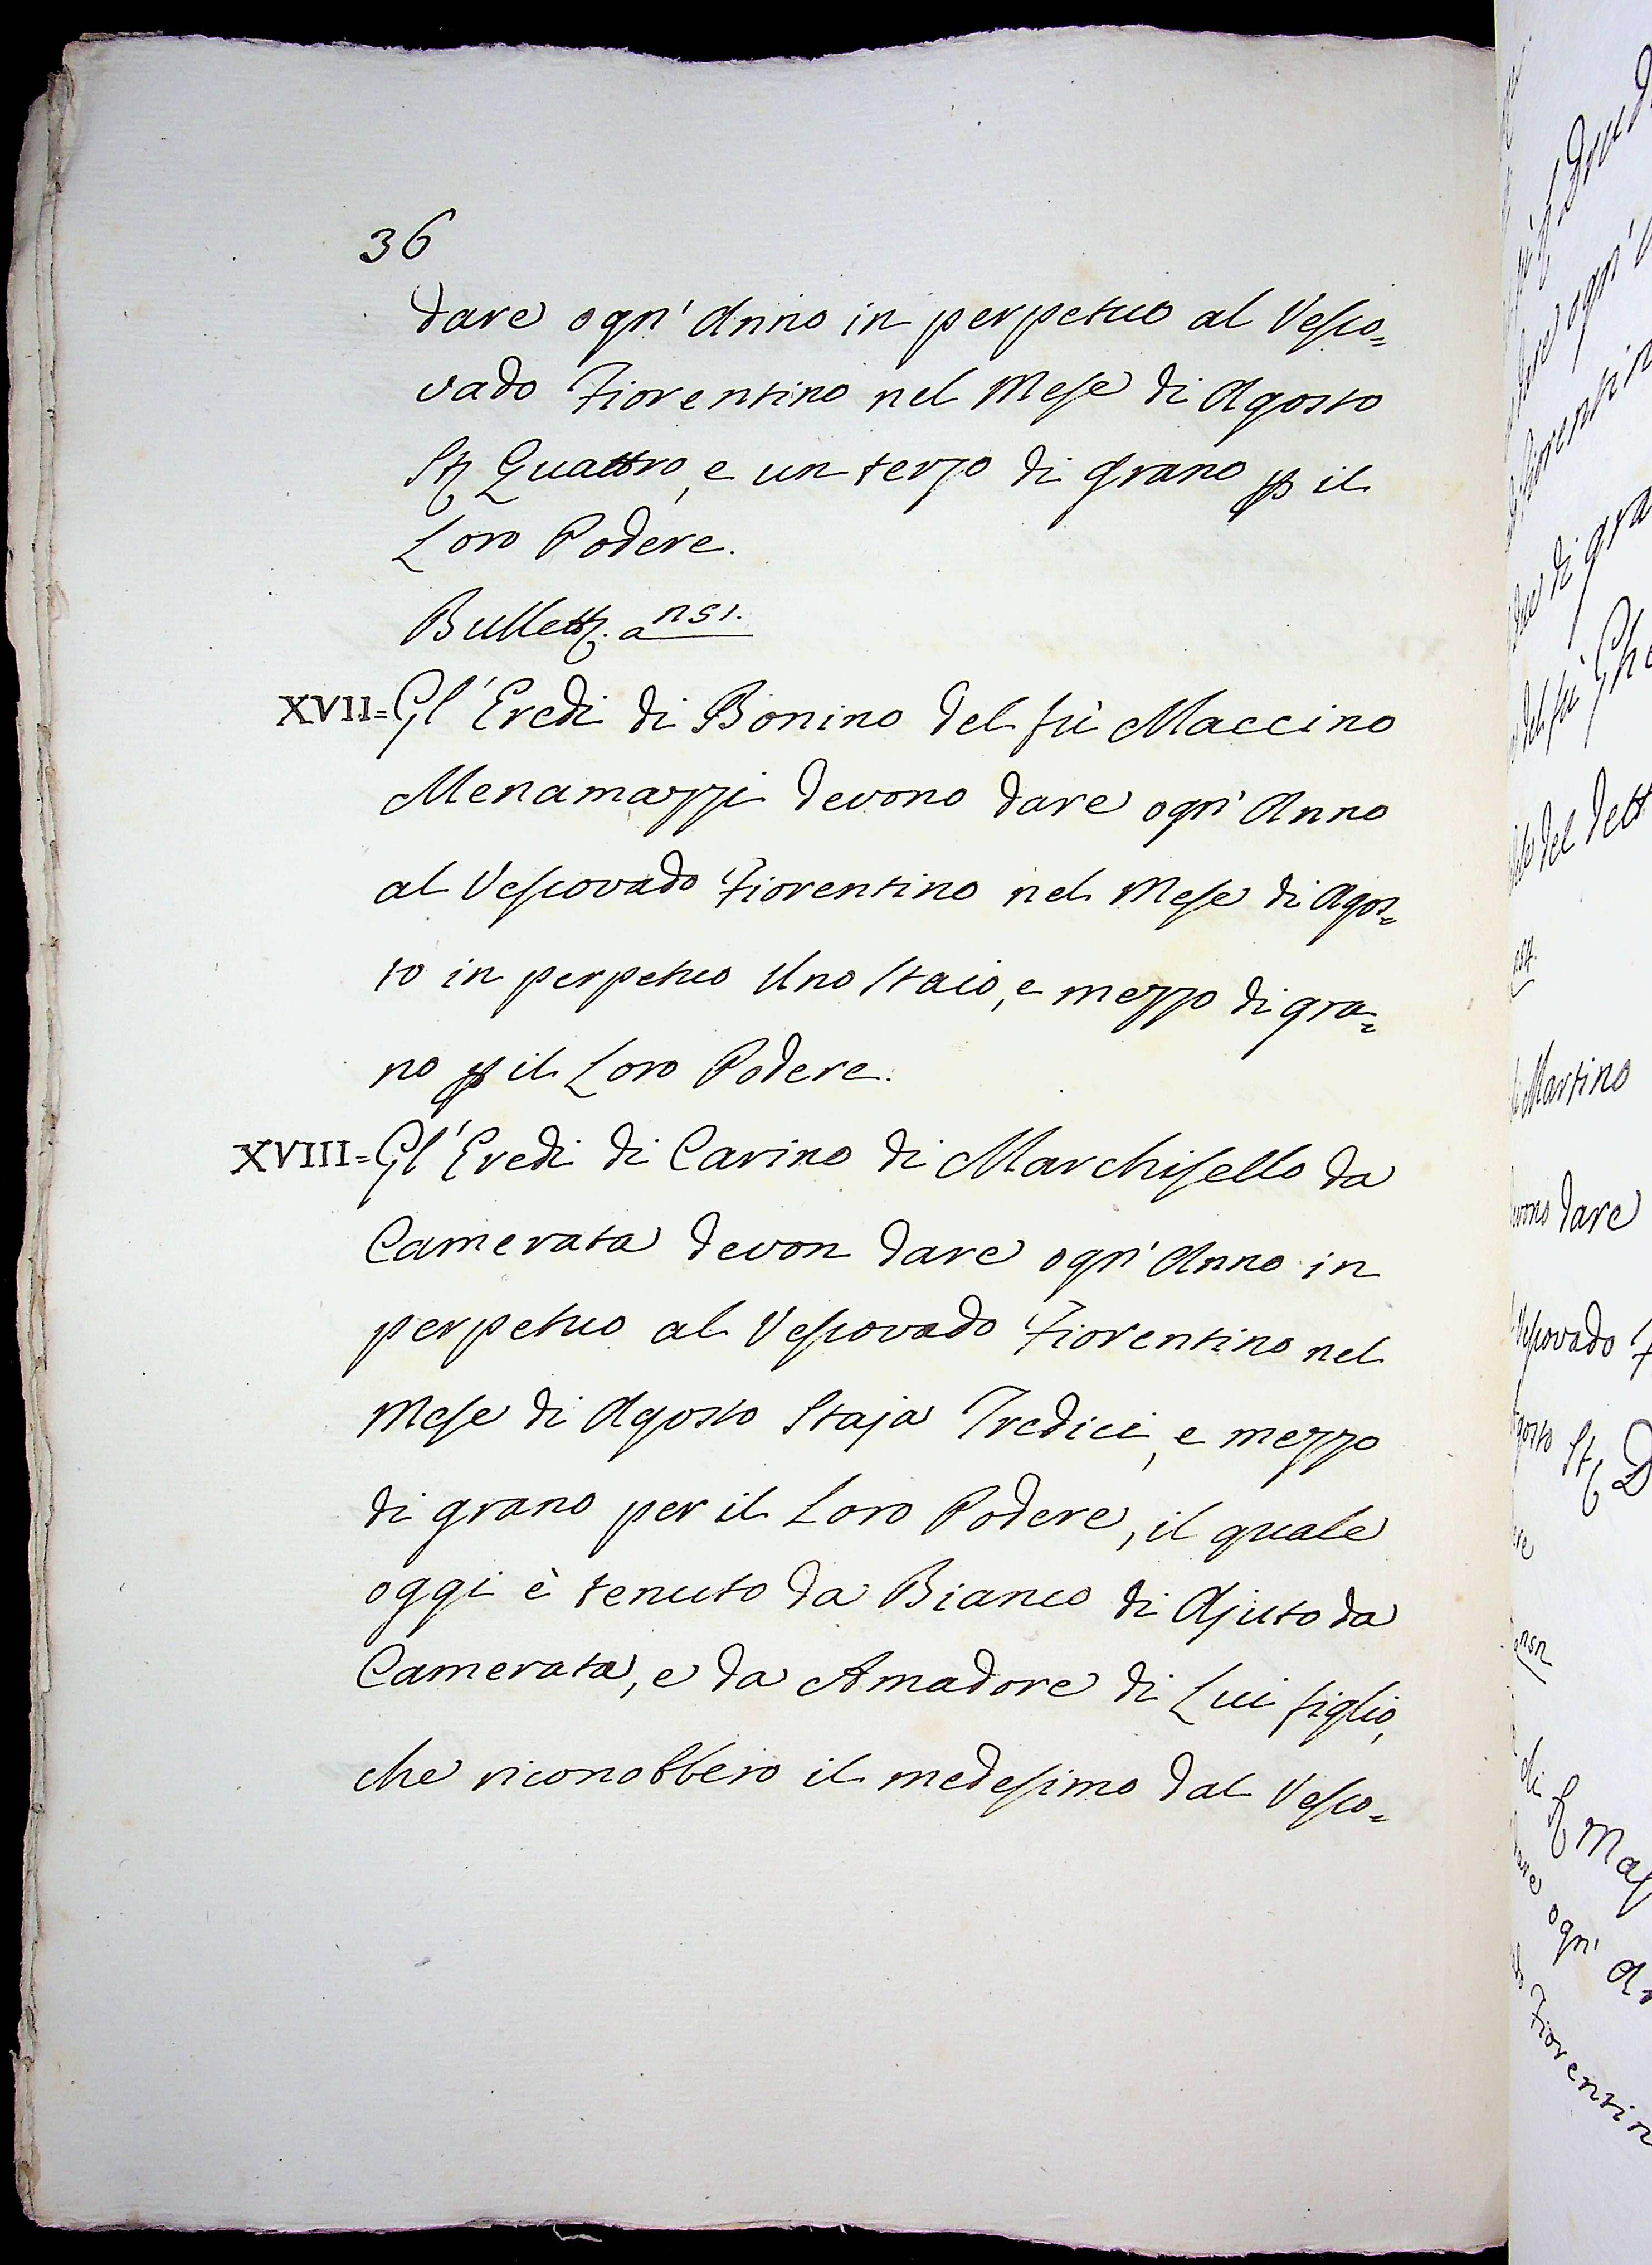 36
dare ogn' Anno in perpetuo al Vesco=
vado Fiorentino nel Mese di Agosto
St. Quattro, e un terzo di grano p il
Loro Podere.
Bullett. a nsi.
XVII= Gl' Eredi di Bonino del fù Maccino
Menamazzi devono dare ogn' Anno
al Vescovado Fiorentino nel Mese di Agos=
to in perpetuo Uno Staio, e mezzo di gra=
no p il Loro Podere.
XVIII= Gl' Eredi di Carino di Marchisello da
Camerata devon dare ogn' Anno in
perpetuo al Vescovado Fiorentino nel
Mese di Agosto Staja Tredici, e mezzo
di grano per il Loro Podere, il quale
oggi è tenuto da Bianco di Ajuto da
Camerata, e da Amadore di Lui figlio,
che riconobbero il medesimo dal Vesco=